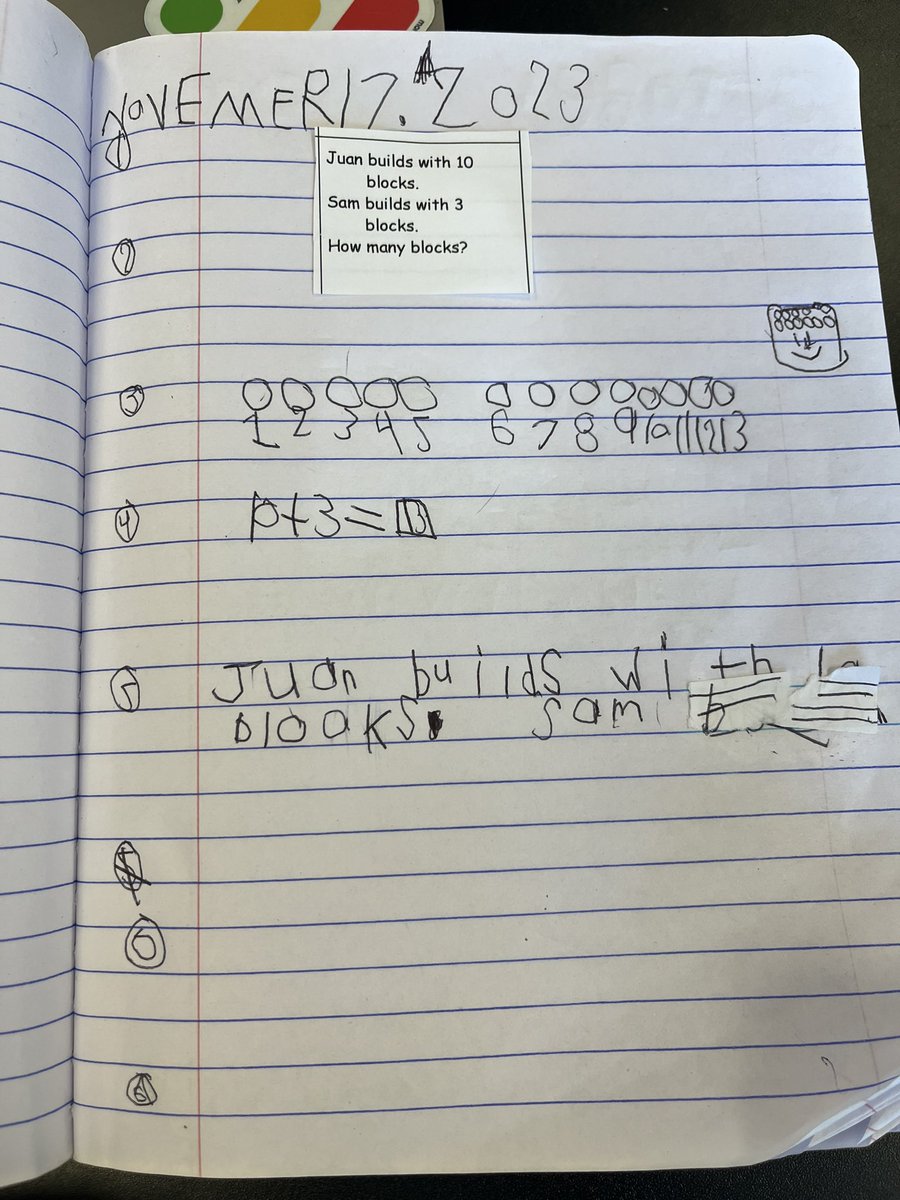 NOVEMER 17. 2023
1
Juan builds with 10
blocks.
Sam builds with 3
blocks.
How many blocks?
2
3
1 2 3 4 5 6 7 8 9 10 11 12 13
4 10+3=13
5 Juan buiids with
blooks. sam b
5
6